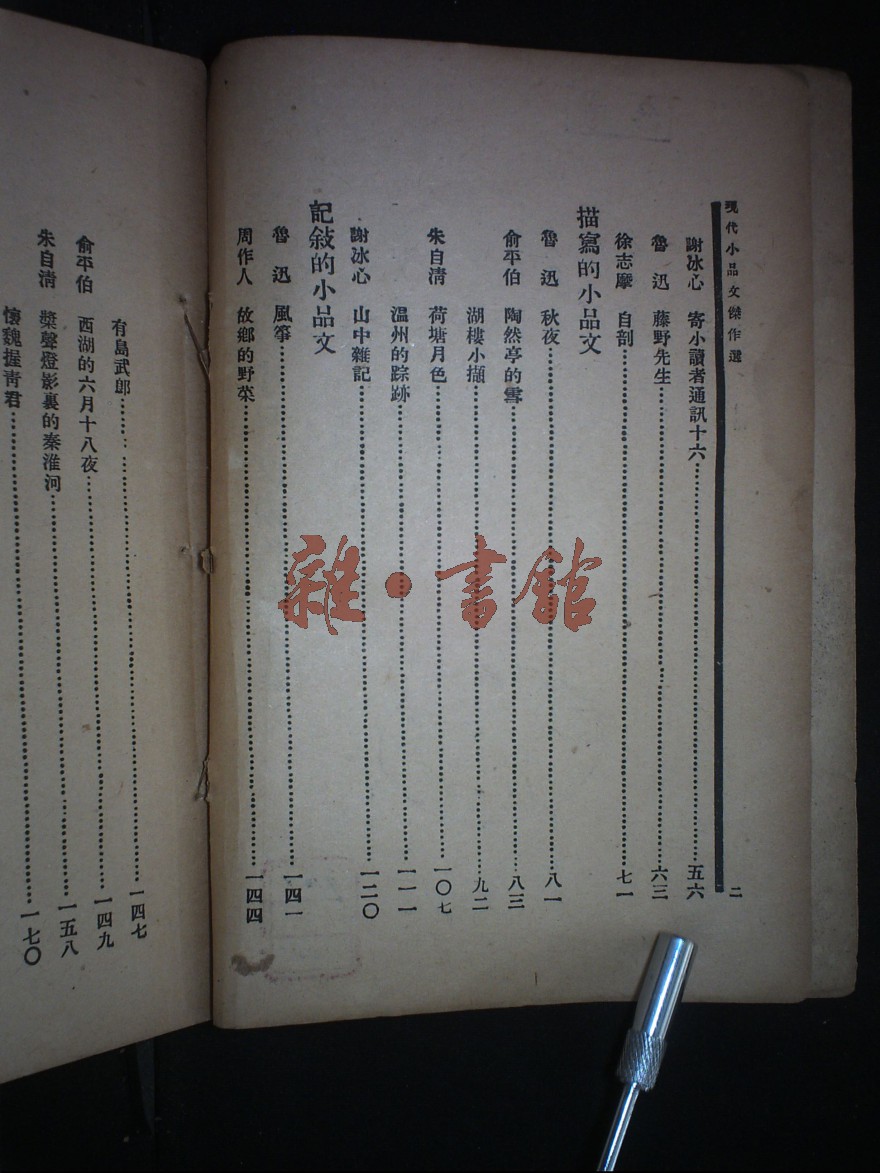 現代小品文傑作選
二
謝冰心 寄小讀者通訊十六……五六
魯迅 藤野先生……六三
徐志摩 自剖……七一
描寫的小品文
魯迅 秋夜……八一
俞平伯 陶然亭的雪……八三
湖樓小擷……九二
朱自清 荷塘月色……一〇七
温州的踪跡……一一一
謝冰心 山中雜記……一二〇
記敍的小品文
魯迅 風箏……一四一
周作人 故鄉的野菜……一四四
有島武郎……一四七
俞平伯 西湖的六月十八夜……一四九
朱自清 槳聲燈影裏的秦淮河……一五八
懷魏握青君……一七〇
雜·書館